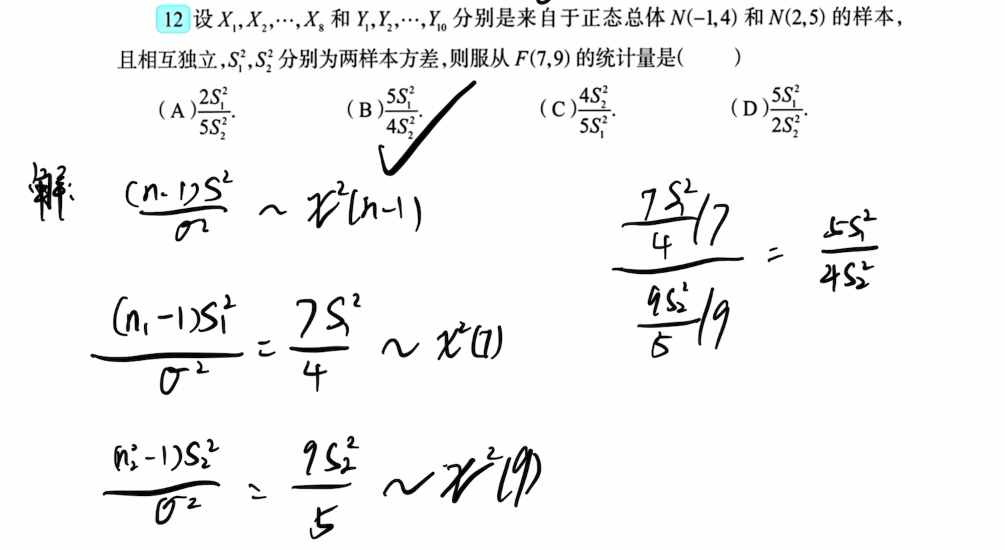 12 设 X₁,X₂,⋯,X₈ 和 Y₁,Y₂,⋯,Y₁₀ 分别是来自于正态总体 N(-1,4) 和 N(2,5) 的样本,
且相互独立,S₁²,S₂² 分别为两样本方差,则服从 F(7,9) 的统计量是(  )
(A) 2S₁²/5S₂². (B) 5S₁²/4S₂². (C) 4S₂²/5S₁². (D) 5S₁²/2S₂².
解: (n-1)S²/σ² ~ χ²(n-1)
(n₁-1)S₁²/σ² = 7S₁²/4 ~ χ²(7)
(n₂-1)S₂²/σ² = 9S₂²/5 ~ χ²(9)
(7S₁²/4 /7)/(9S₂²/5 /9) = 5S₁²/4S₂²